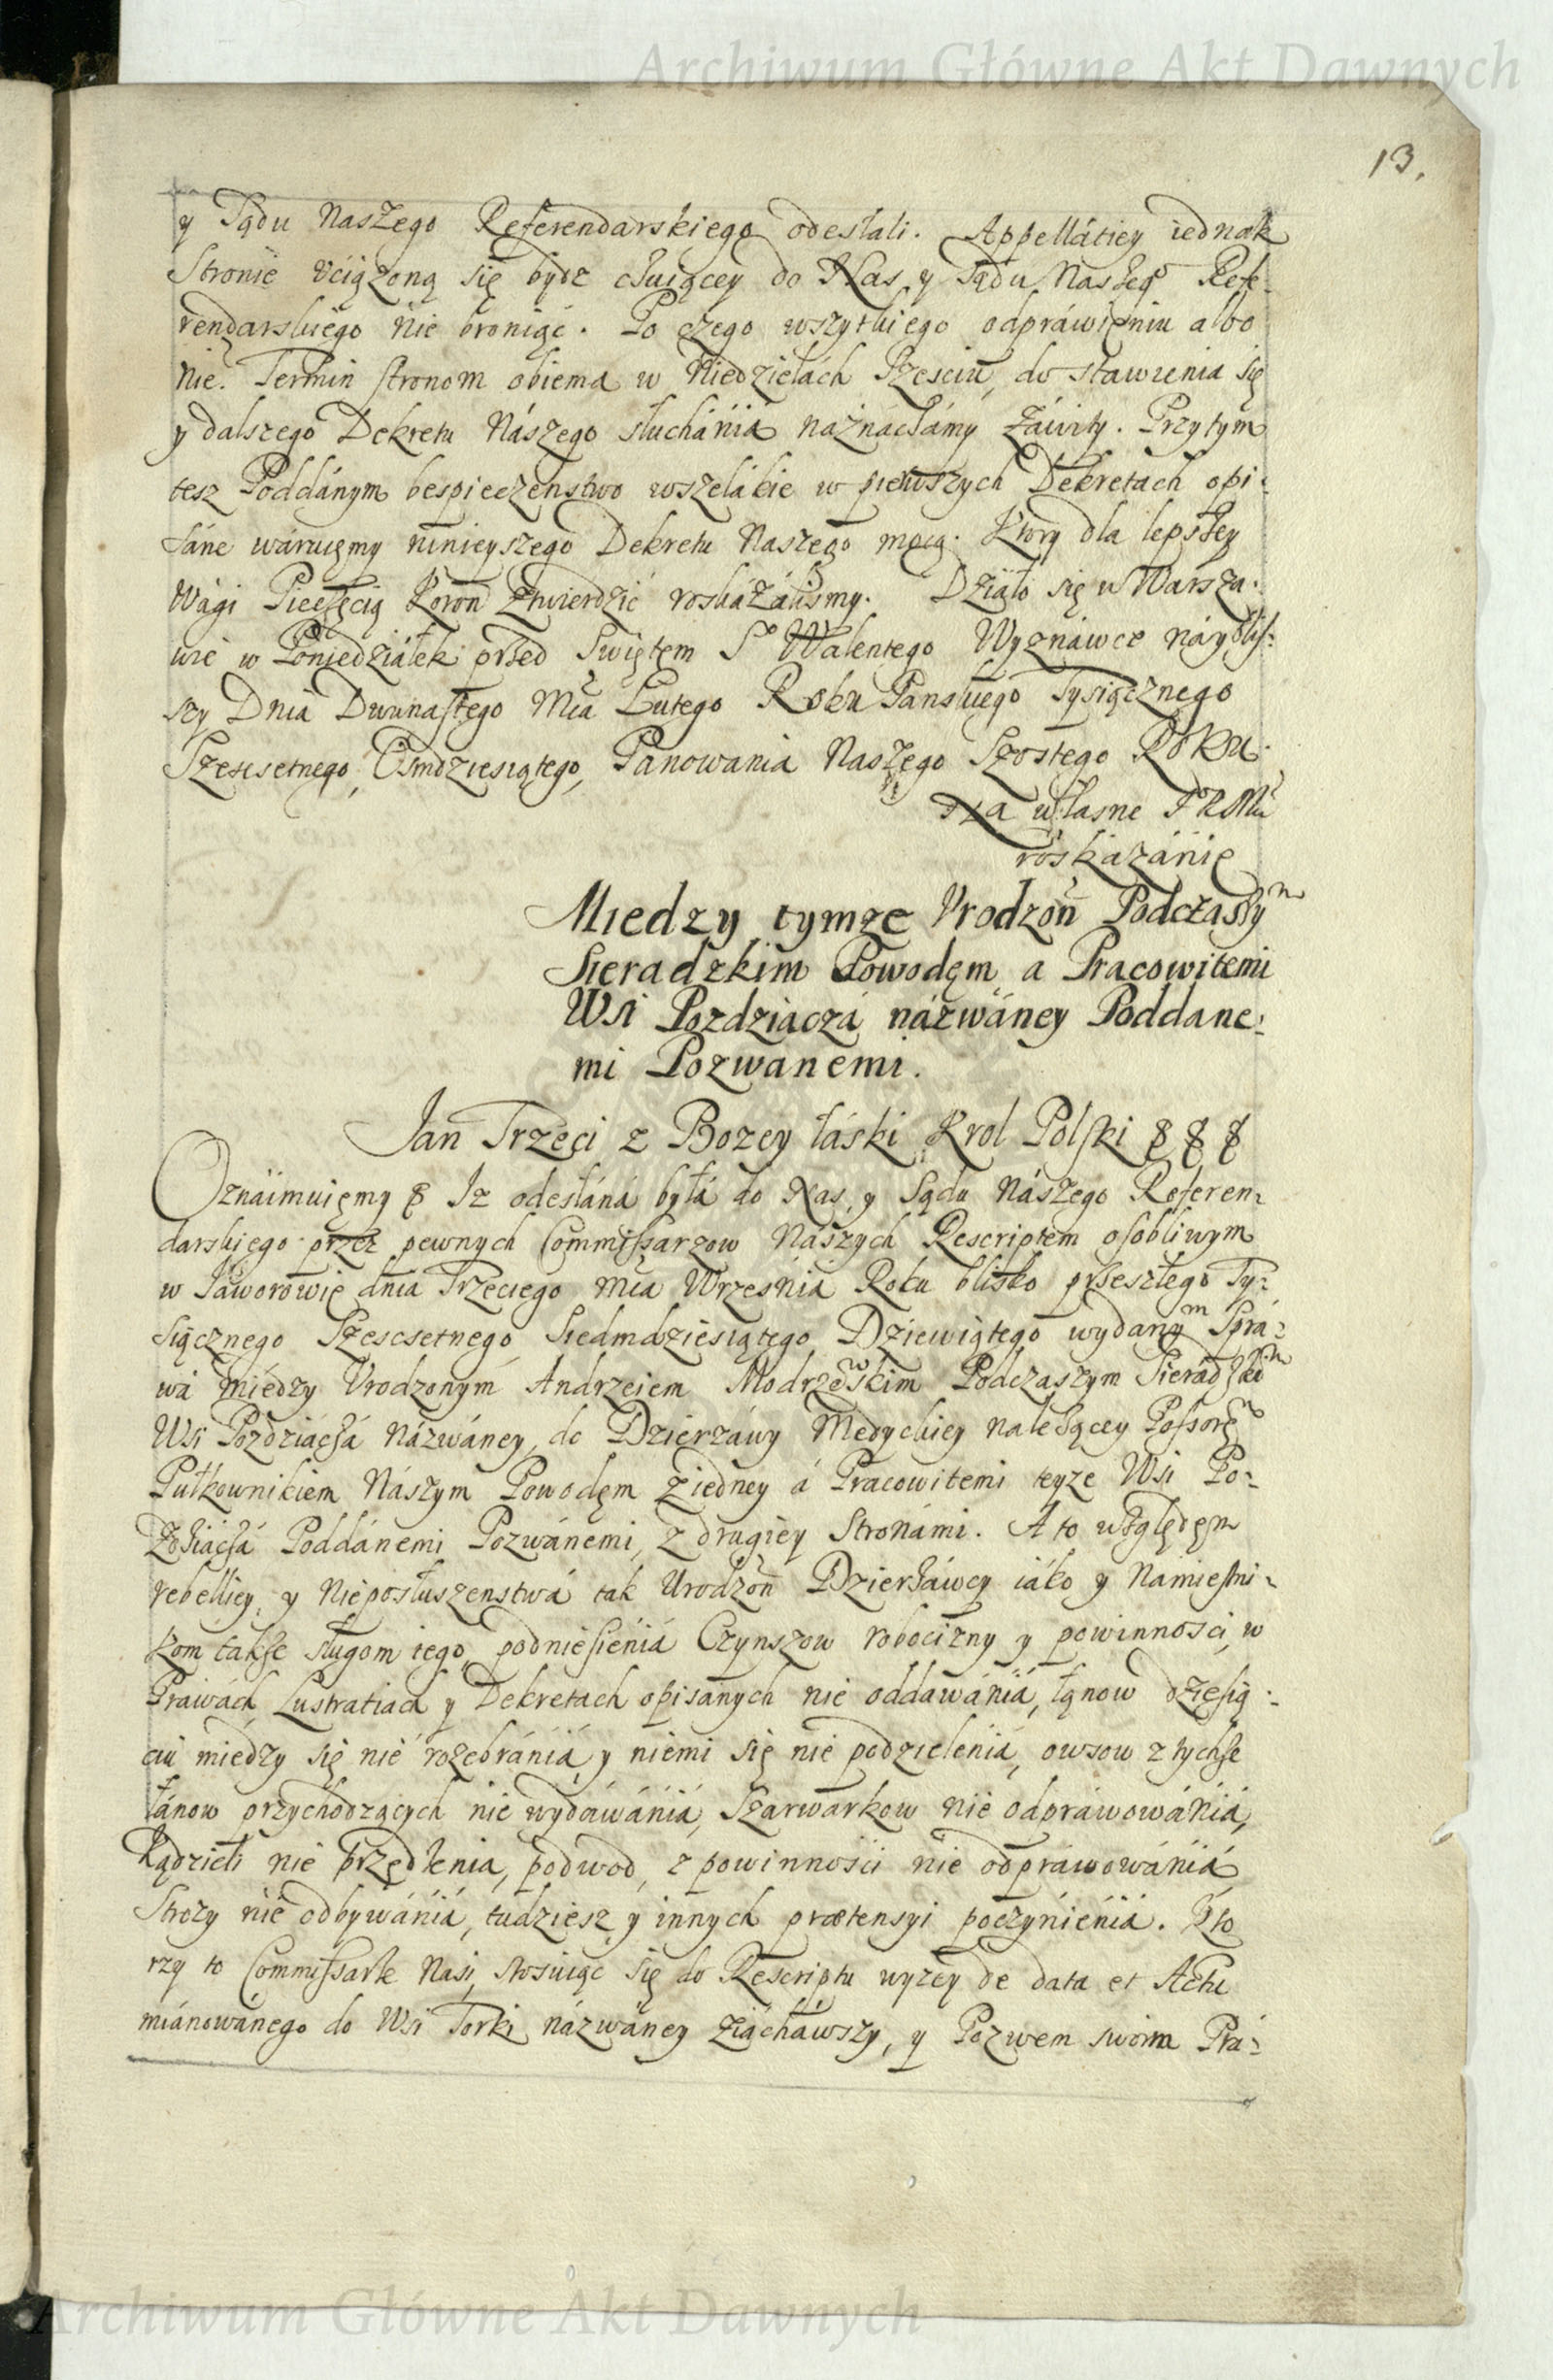 Archiwum Główne Akt Dawnych
13.
y Sądu Naszego Referendarskiego odesłali. Appellátiey iednak
Stronie vciążoną się bydz czuiącey do Nas y Sądu Naszeg° Refe-
rendarskiego nie broniąć. Po czego wszytkiego odpráwieniu albo
nie. Termin stronom obiema w Niedzielách Szesciu, do stawienia się
y dalszego Dekretu Nászego słuchánia náznáczámy záwity. Przytym
tesz Poddánym bespieczenstwo wszelákie w pierwszych Dekretach opi-
sáne wáruięmy ninieyszego Dekretu Naszego mocą. Ktory dla lepszey
Wagi Pieczęcią Koron ztwierdzić roskázálismy. Działo się w Warsza-
wie w Poniedziałek przed Swiętem S° Walentego Wyznáwce náyblis-
szy Dnia Dwunastego Mca Lutego Roku Panskiego Tysiącznego
Szescsetnego, Osmdziesiątego, Panowania Naszego Szostego Roku.
Za własne JKMci
roskazánie
Miedzy tymze Vrodzon Podczaszym
Sieradzkim Powodęm a Pracowitemi
Wsi Pozdziacza názwáney Poddane-
mi Pozwanemi.
Jan Trzeci z Bozey łáski Krol Polski & & &
Oznaimuięmy & Iz odesłáná byłá do Nas y Sądu Nászego Referen-
darskiego przez pewnych Commissarzow Nászych Rescriptem osobliwym
w Jaworowie dnia Trzeciego Mca Wrzesnia Roku blisko przeszłego Ty-
siącznego Szescsetnego Siedmdziesiątego Dziewiątego wydanym Sprá-
wá między Vrodzonym Andrzeiem Modrzewskim Podczaszym Sieradzkim
Wsi Pozdziáczá Názwáney, do Dzierzáwy Medyckiey nalezącey Possorem
Pułkownikiem Nászym Powodęm z iedney á Pracowitemi teyze Wsi Po-
zdziaczá Poddánemi Pozwánemi, z drugiey Stronámi. A to względęm
rebelliey, y Nieposłuszenstwá tak Urodzon Dzierżáwcy iáko y Namiestni-
kom takze sługom iego, podniesieniá Czynszow robocizny y powinnosci, w
Práwách, Lustratiach y Dekretach opisanych nie oddawánia, łąnow dziesią-
ciu miedzy się nie rozebránia, y niemi się nie podzieleniá, owsow z tychze
łánow przychodzących nie wydáwániá, Szarwarkow nie odpráwowániá,
Kądzieli nie przędzenia, podwod, z powinności nie odpráwowániá
Strozy nie odbywániá, tudziesz y innych prætensyi poczynieniá. Kto
rzy to Commissarze Nasi, stosuiąc się do Rescriptu wyzey de data et Actu
miánowánego do Wsi Torki názwáney ziácháwszy, y Pozwem swoim Prá-
Archiwum Główne Akt Dawnych